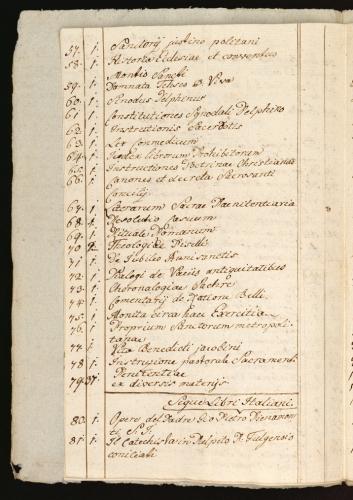 57. 1. Sanctorij justino politani
58. 1. Historia Eclesiae et conventus
Montis Sancti
59. 1. Damnata Theses
60. 1. Sinodus Delphinus
61. 1. Constitutiones Synodali Delphino
62. 1. Instructionis Sacerdotis
63. 1. Lex
64. 1. Index librorum Prohibitorum
65. 1. Instructiones Doctrinae Christianae
66. 1. Canones et decreta Sacrosanti
Concilij
67. 1. Sacrae Paenitentiaria
68. 1. Resolutio casuum
69. 1. Rituale Romanum
70. 2. Theologicae
71. 1. De Jubileo Anni sanctis
72. 1. Dialogi de Variis antiquitatibus
73. 1. Chronologiae Sachre
74. 1. Comentarij de Ratione Belli
75. 1. Monita circa haec Exercitia
76. 1. Proprium Sanctorum metropoli-
tanae
77. 1. Vita Benedicti jacobini
78. 1. Instruzione pastorale Sacramenti
Penitentiae
79. 37. ex diversis materijs
Segue Libri Italiani.
80. 1. Opere del Padre Gio Pietro Pinamon-
ti S. J.
81. 1. Il Catechista in Pulpito P. Fulgenzio